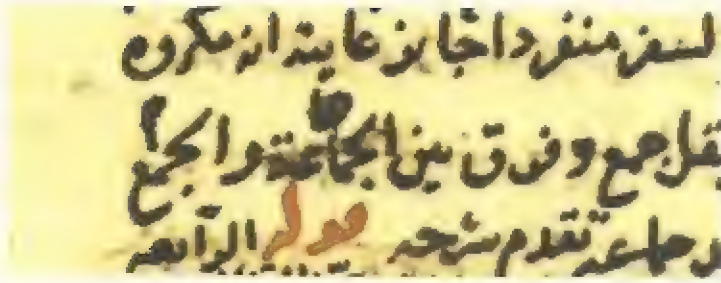 لسفر منفردا جايز غايته انه مكروه
يقل جمع وفرق بين الجماعة والجمع
جماعة تقدم شرحه قوله الرابعه